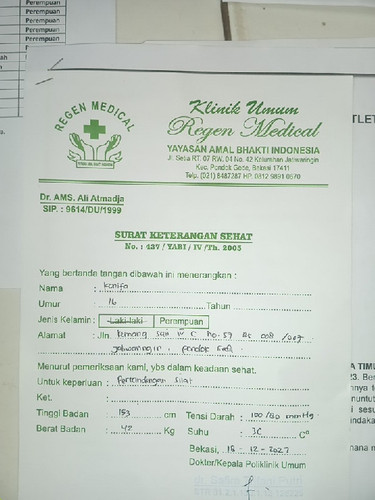 Perempuan
Perempuan
Perempuan
Perempuan
REGEN MEDICAL
Klinik Umum
Regen Medical
YAYASAN AMAL BHAKTI INDONESIA
RT. 07 RW. 04 No. 42 Kelurahan Jatiwaringin
Kec. Pondok Gede, Bekasi 17411
Telp. (021) 8487287 HP. 0812 9891 0670
Dr. AMS. Ali Atmadja
SIP. : 9614/DU/1999
SURAT KETERANGAN SEHAT
No. : 437 / YABI / IV /Th. 2005
Yang bertanda tangan dibawah ini menerangkan :
Nama :
Umur : 16 Tahun
Jenis Kelamin : Laki-laki Perempuan
Alamat : Jln. Kemang Sari IV C No. 59 Rt 008 /009
Jatiwaringin, Pondok Gede
Menurut pemeriksaan kami, ybs dalam keadaan sehat.
Untuk keperluan : Pertandingan Silat
Ket. :
Tinggi Badan : 153 cm Tensi Darah : 100/80 mmHg
Berat Badan : 42 Kg Suhu : 36 C°
Bekasi, 18 - 12 - 2022
Dokter/Kepala Poliklinik Umum